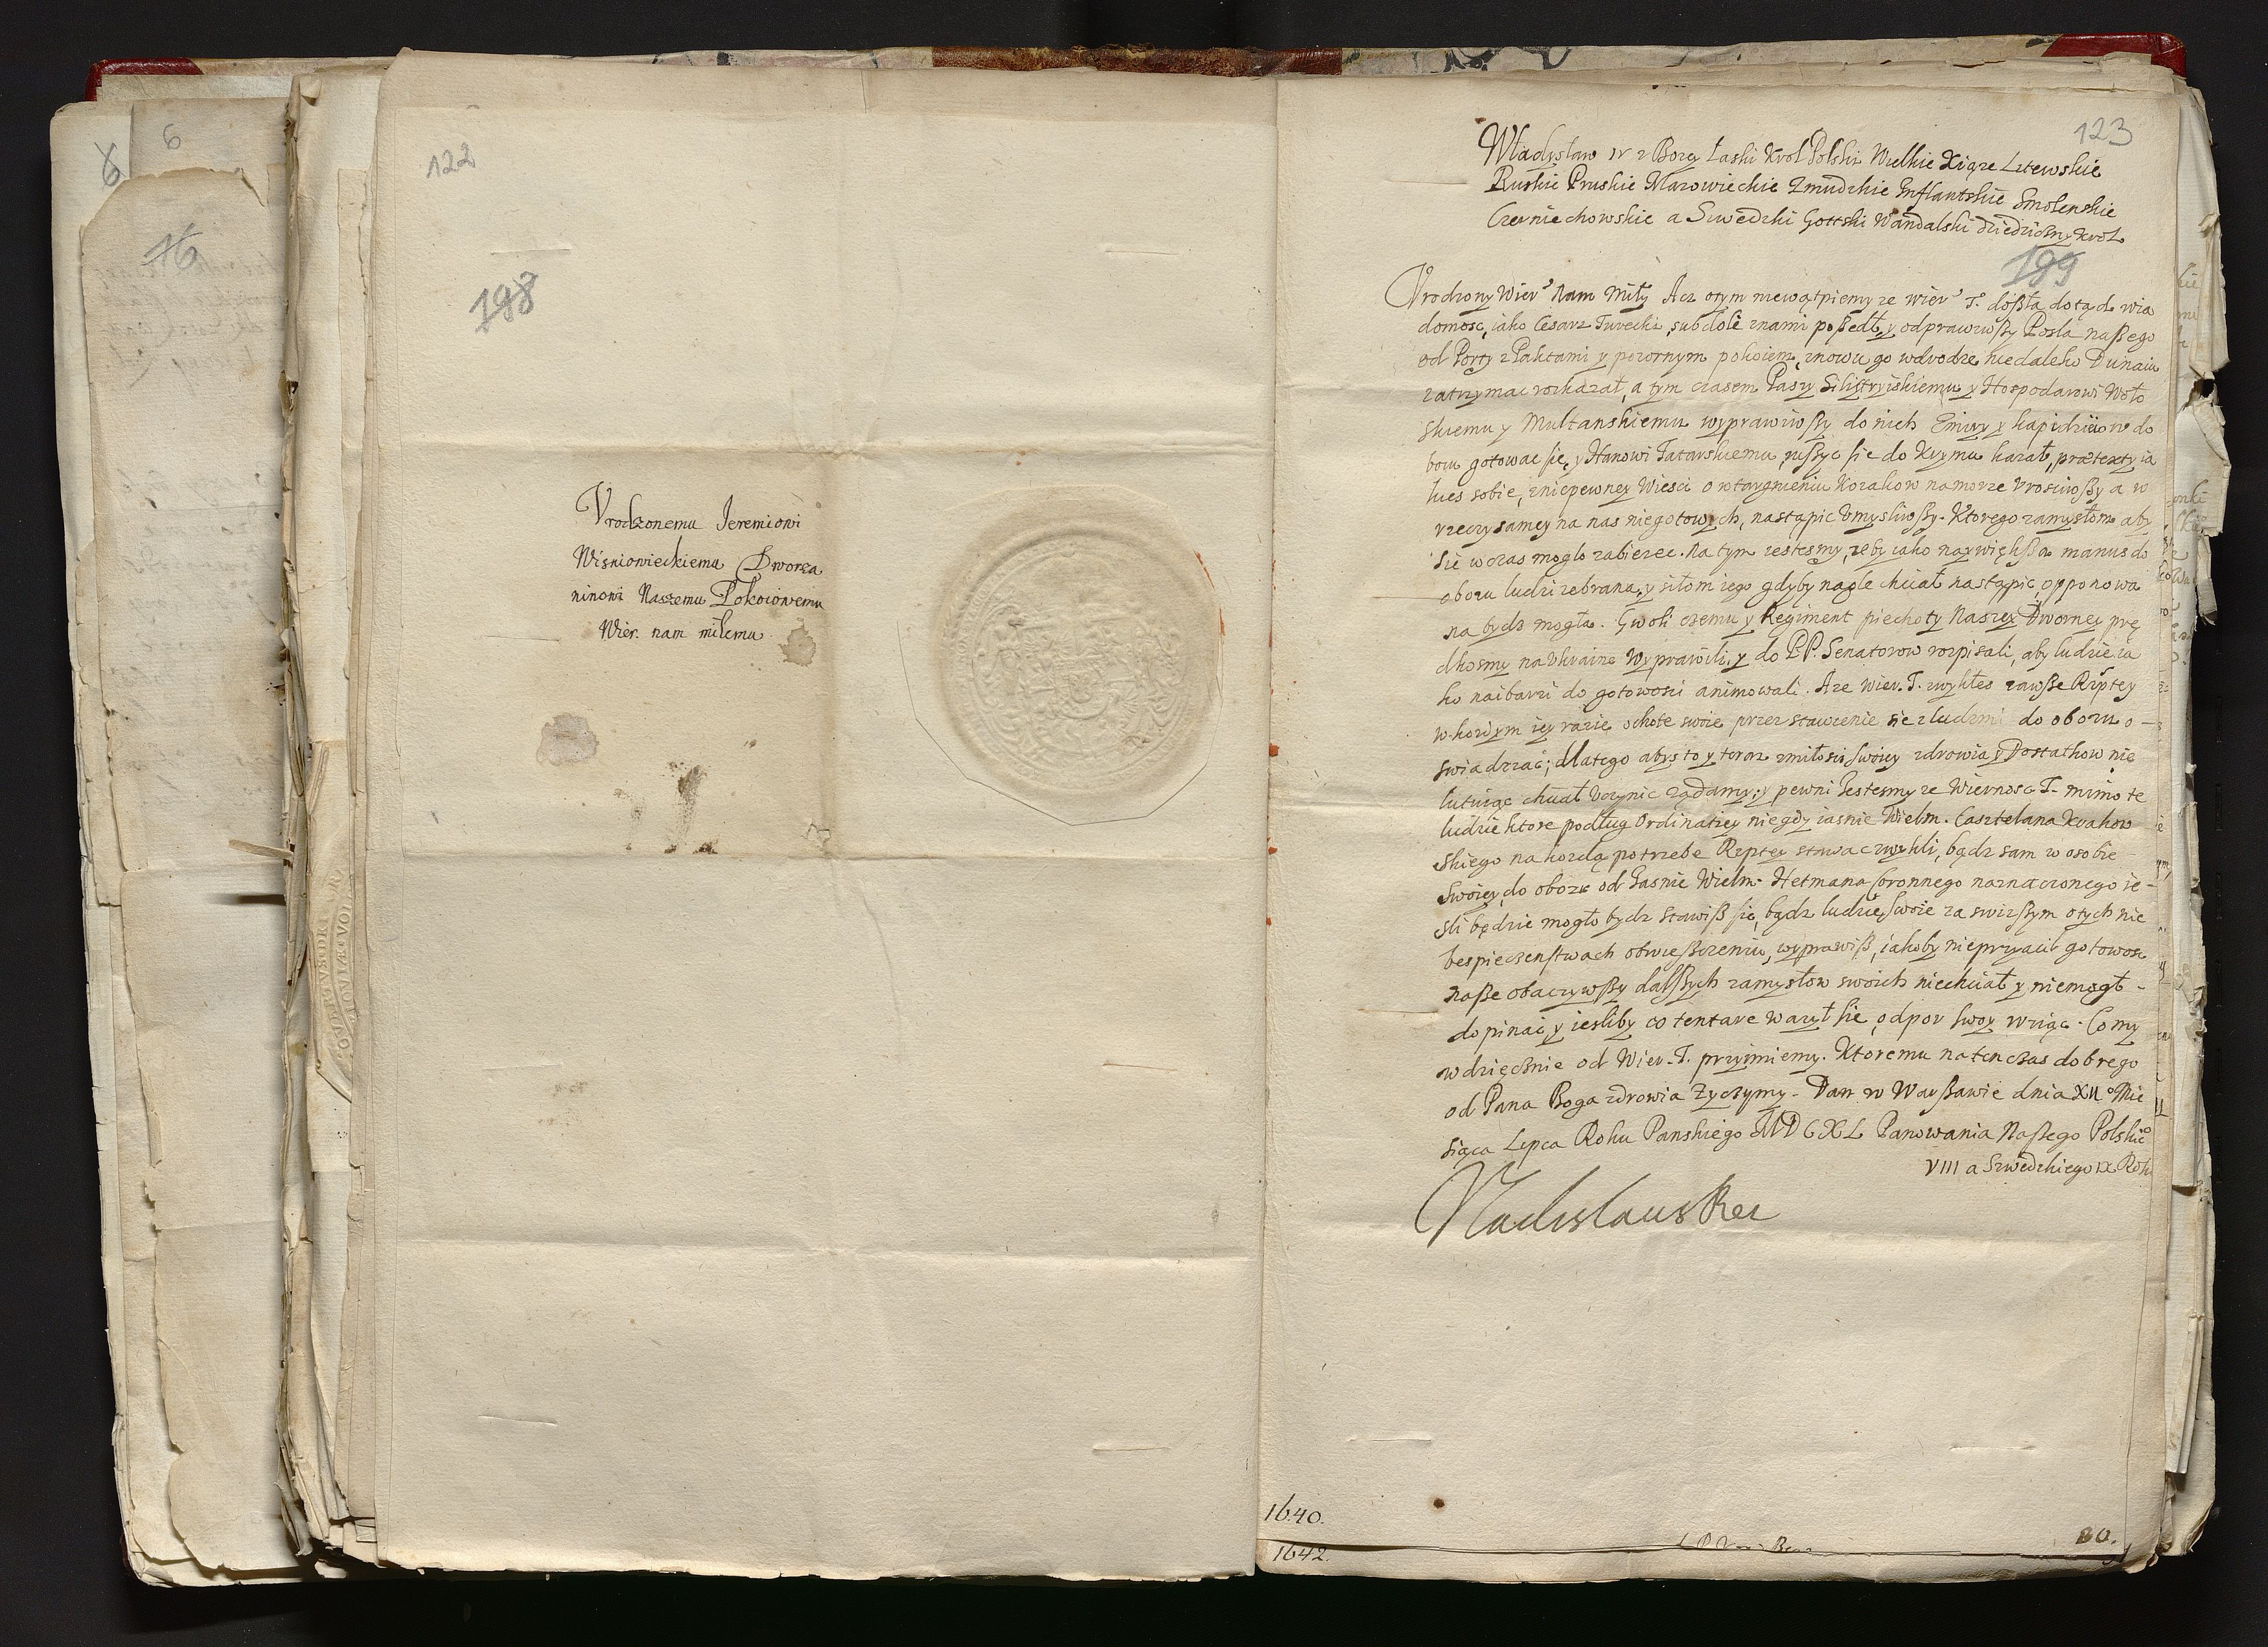 8
6
16
122
198
Vrodzonemu Jeremiowi
Wisniowieckiemu Dworza
ninowi Naszemu Pokoiowemu
Wier. nam miłemu
123
Władysław IV z Bozey Łaski Krol Polski Wielkie Xiąze Litewskie
Ruskie Pruskie Mazowieckie Zmudzkie Inflantskie Smolenskie
Czerniechowskie a Szwedzki Gottski Wandalski dziedziczny Krol
199
Vrodzony Wier. Nam Miły Acz otym niewątpiemy ze Wier. T. doszła dotąd wia
domosc, iako Cesarz Turecki, subdole znami poszedł, y odprawiwszy Posła naszego
od Porty z Paktami y pozornym pokoiem, znowu go wdrodze niedaleko Dunaiu
zatrzymac roskazał, a tym czasem Paszy Silistryiskiemu y Hospodarowi Woło
skiemu y Multanskiemu wyprawiwszy do nich Emiry y kapidziiow do
boiu gotowac się, y Hanowi Tatarskiemu ruszyc się do Krymu kazał, prætexty ia
kies sobie, zniepewney wiesci o wtargnieniu Kozakow na morze vrosciwszy a w
rzeczy samey na nas niegotowych, nastąpic vmysliwszy. Ktorego zamysłom aby
się wczas mogło zabiezec. Na tym iestesmy, zeby iako naywiększa manus do
obozu ludzi zebrana, y siłom iego gdyby nagle chciał nastąpic, opponowa
na bydz mogła. Gwoli czemu y Regiment piechoty Naszey Dworney prę
dkosmy na Vkrainę wyprawili, y do P.P. Senatorow rozpisali, aby ludzie ia
ko naibarzi do gotowosci animowali. A ze Wier. T. zwykłes zawsze Rzptey
w kozdym iey razie ochotę swoię przez stawienie się z ludzmi do obozu o-
swiadczac; dlatego abys to y teraz zmiłosci swoiey zdrowia y Dostatkow nie
lutuiąc chciał vczynic ządamy; y pewni iestesmy ze Wiernosc T. mimo te
ludzie ktore podług Ordinatiey niegdy iasnie Wielm. Casztelana Krakow
skiego na kozdą potrzebę Rzptey stawac zwykli, bądz sam w osobie
swoiey, do obozu od Iasnie Wielm. Hetmana Coronnego naznaczonego ie-
sli będzie mogło bydz stawisz się, bądz ludzie swoie za swizszym o tych nie
bespieczenstwach obwieszczeniu, wyprawisz, iakoby nieprzyaciel gotowosc
nasze obaczywszy dalszych zamysłow swoich niechciał y niemogł-
dopinac, y iesliby co tentare wazył się, odpor swoy wziąc. Co my
wdzięcznie od Wier. T. przyimiemy. Ktoremu natenczas dobrego
od Pana Boga zdrowia zyczymy. Dan w Warszawie dnia XII° Mie
siąca Lipca Roku Panskiego MDCXL Panowania Naszego Polskie°
VIII a Szwedzkiego IX Roku
Vladislaus Rex
1640.
80.
1642.